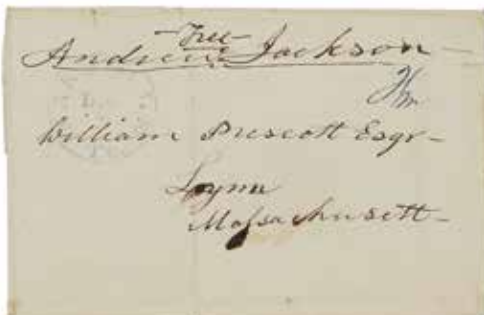 Free
Andrew Jackson
William Prescott Esqr
Lynn
Massachusett